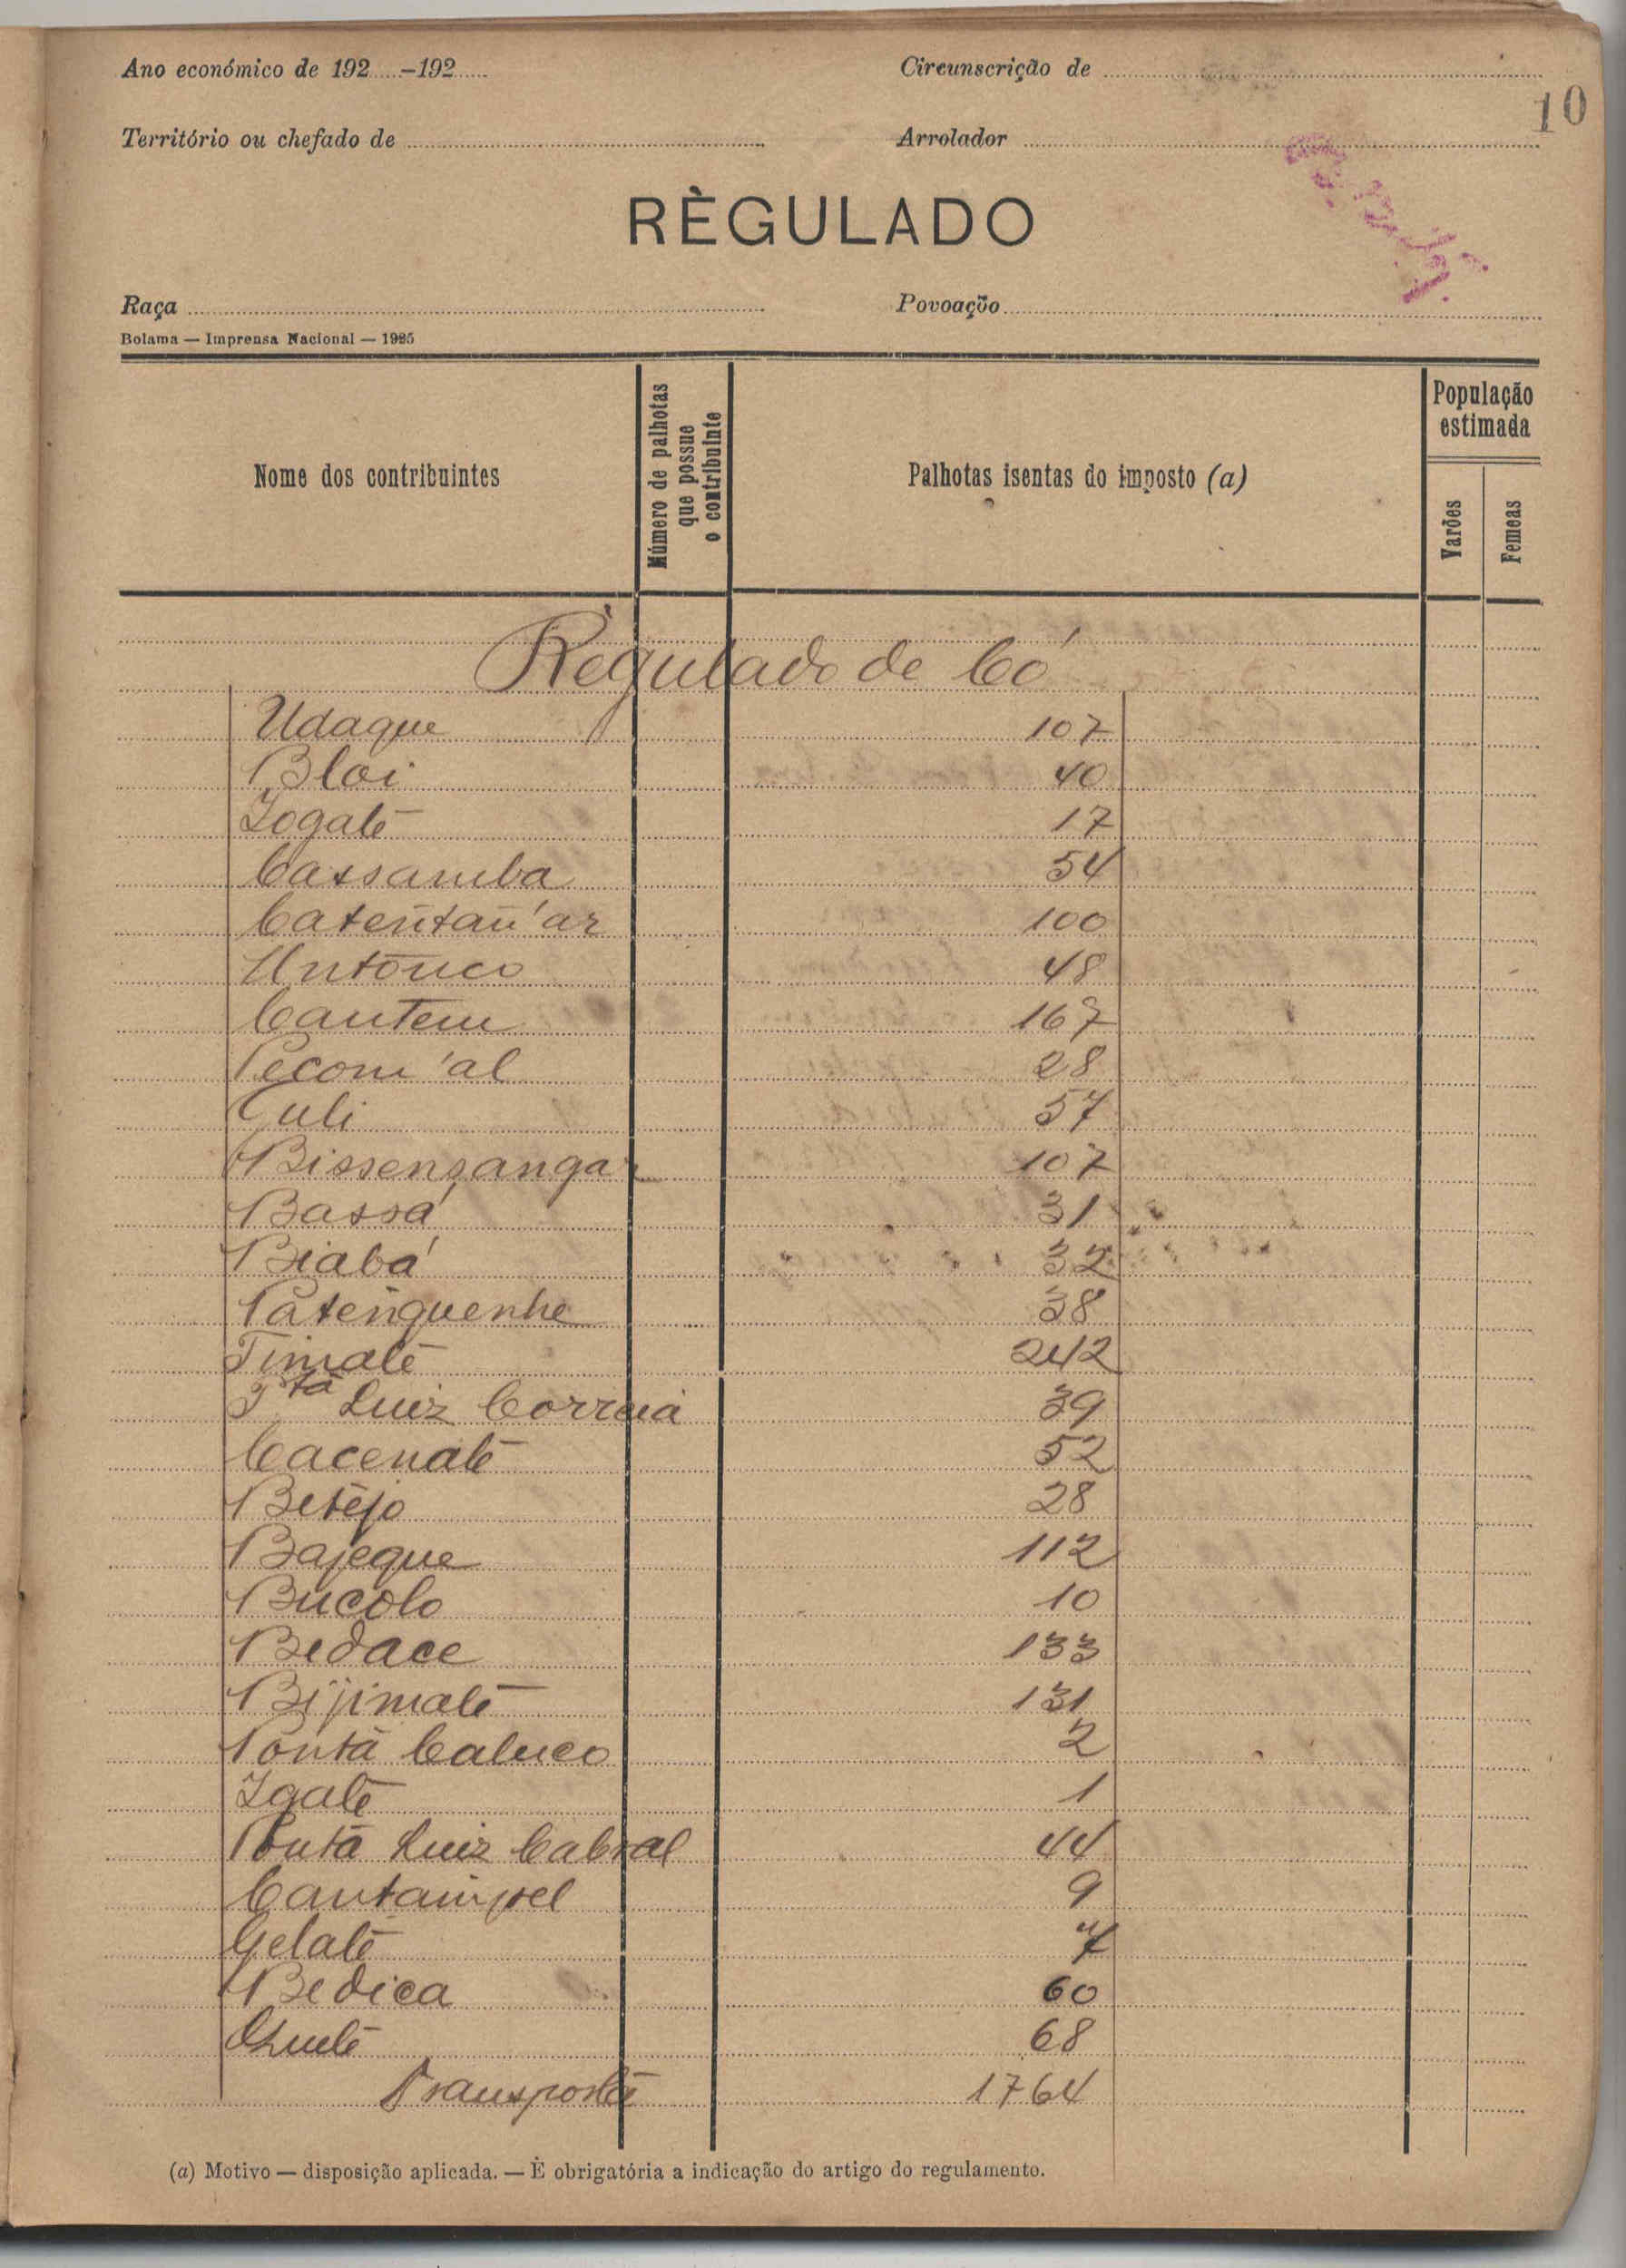 Ano económico de 192.....–192.....
Circunscrição de
10
Território ou chefado de
Arrolador
RÈGULADO
Raça
Povoação
Bolama — Imprensa Nacional — 1925
Nome dos contribuintes
Número de palhotas que possue o contribuinte
Palhotas isentas do imposto (a)
População estimada
Varões
Femeas
Regulado de Có
Udaque 107
Bloi 40
Jogalé 17
Cassamba 54
Catentan'ar 100
Untonco 48
Cantem 167
Pecom'al 28
Culi 57
Bissensangar 107
Bassá 31
Biabá 32
Patenguenhe 38
Timalé 242
Pta Luiz Correia 39
Cacenalé 52
Betêjo 28
Bajeque 112
Bucolo 10
Bedace 133
Bijimalé 131
Ponta Caluco 2
Igalé 1
Ponta Luiz Cabral 44
Cantampel 9
Gelalé 7
Bedica 60
68
Transporte 1764
(a) Motivo — disposição aplicada. — É obrigatória a indicação do artigo do regulamento.